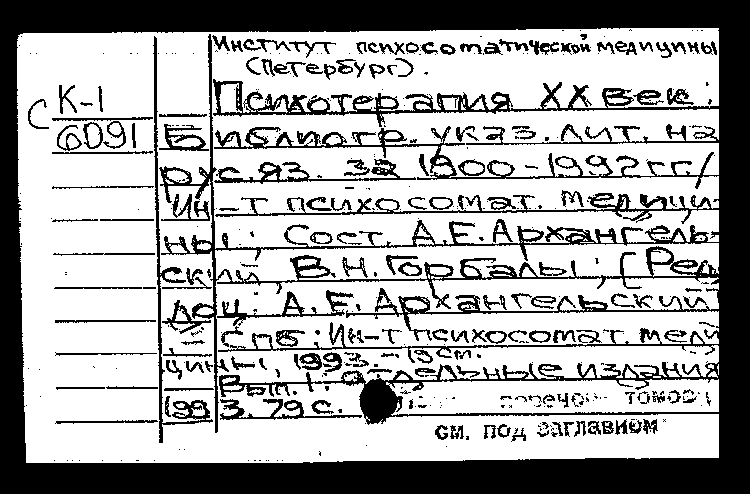 Институт психосоматической медицины
(Петербург).
К-1
6091
Психотерапия XX век:
Библиогр. указ. лит. на
рус. яз. за 1900-1992 гг./
Ин-т психосомат. медици-
ны; Сост. А.Е. Архангель-
ский, В.Н. Горбалы; [Ред.
доц. А.Е. Архангельский]
. - СПб: Ин-т психосомат. меди
цины, 1993. - 19 см.
Вып. 1. Отдельные издания
1993. 79 с.
перечень томов
см. под заглавием